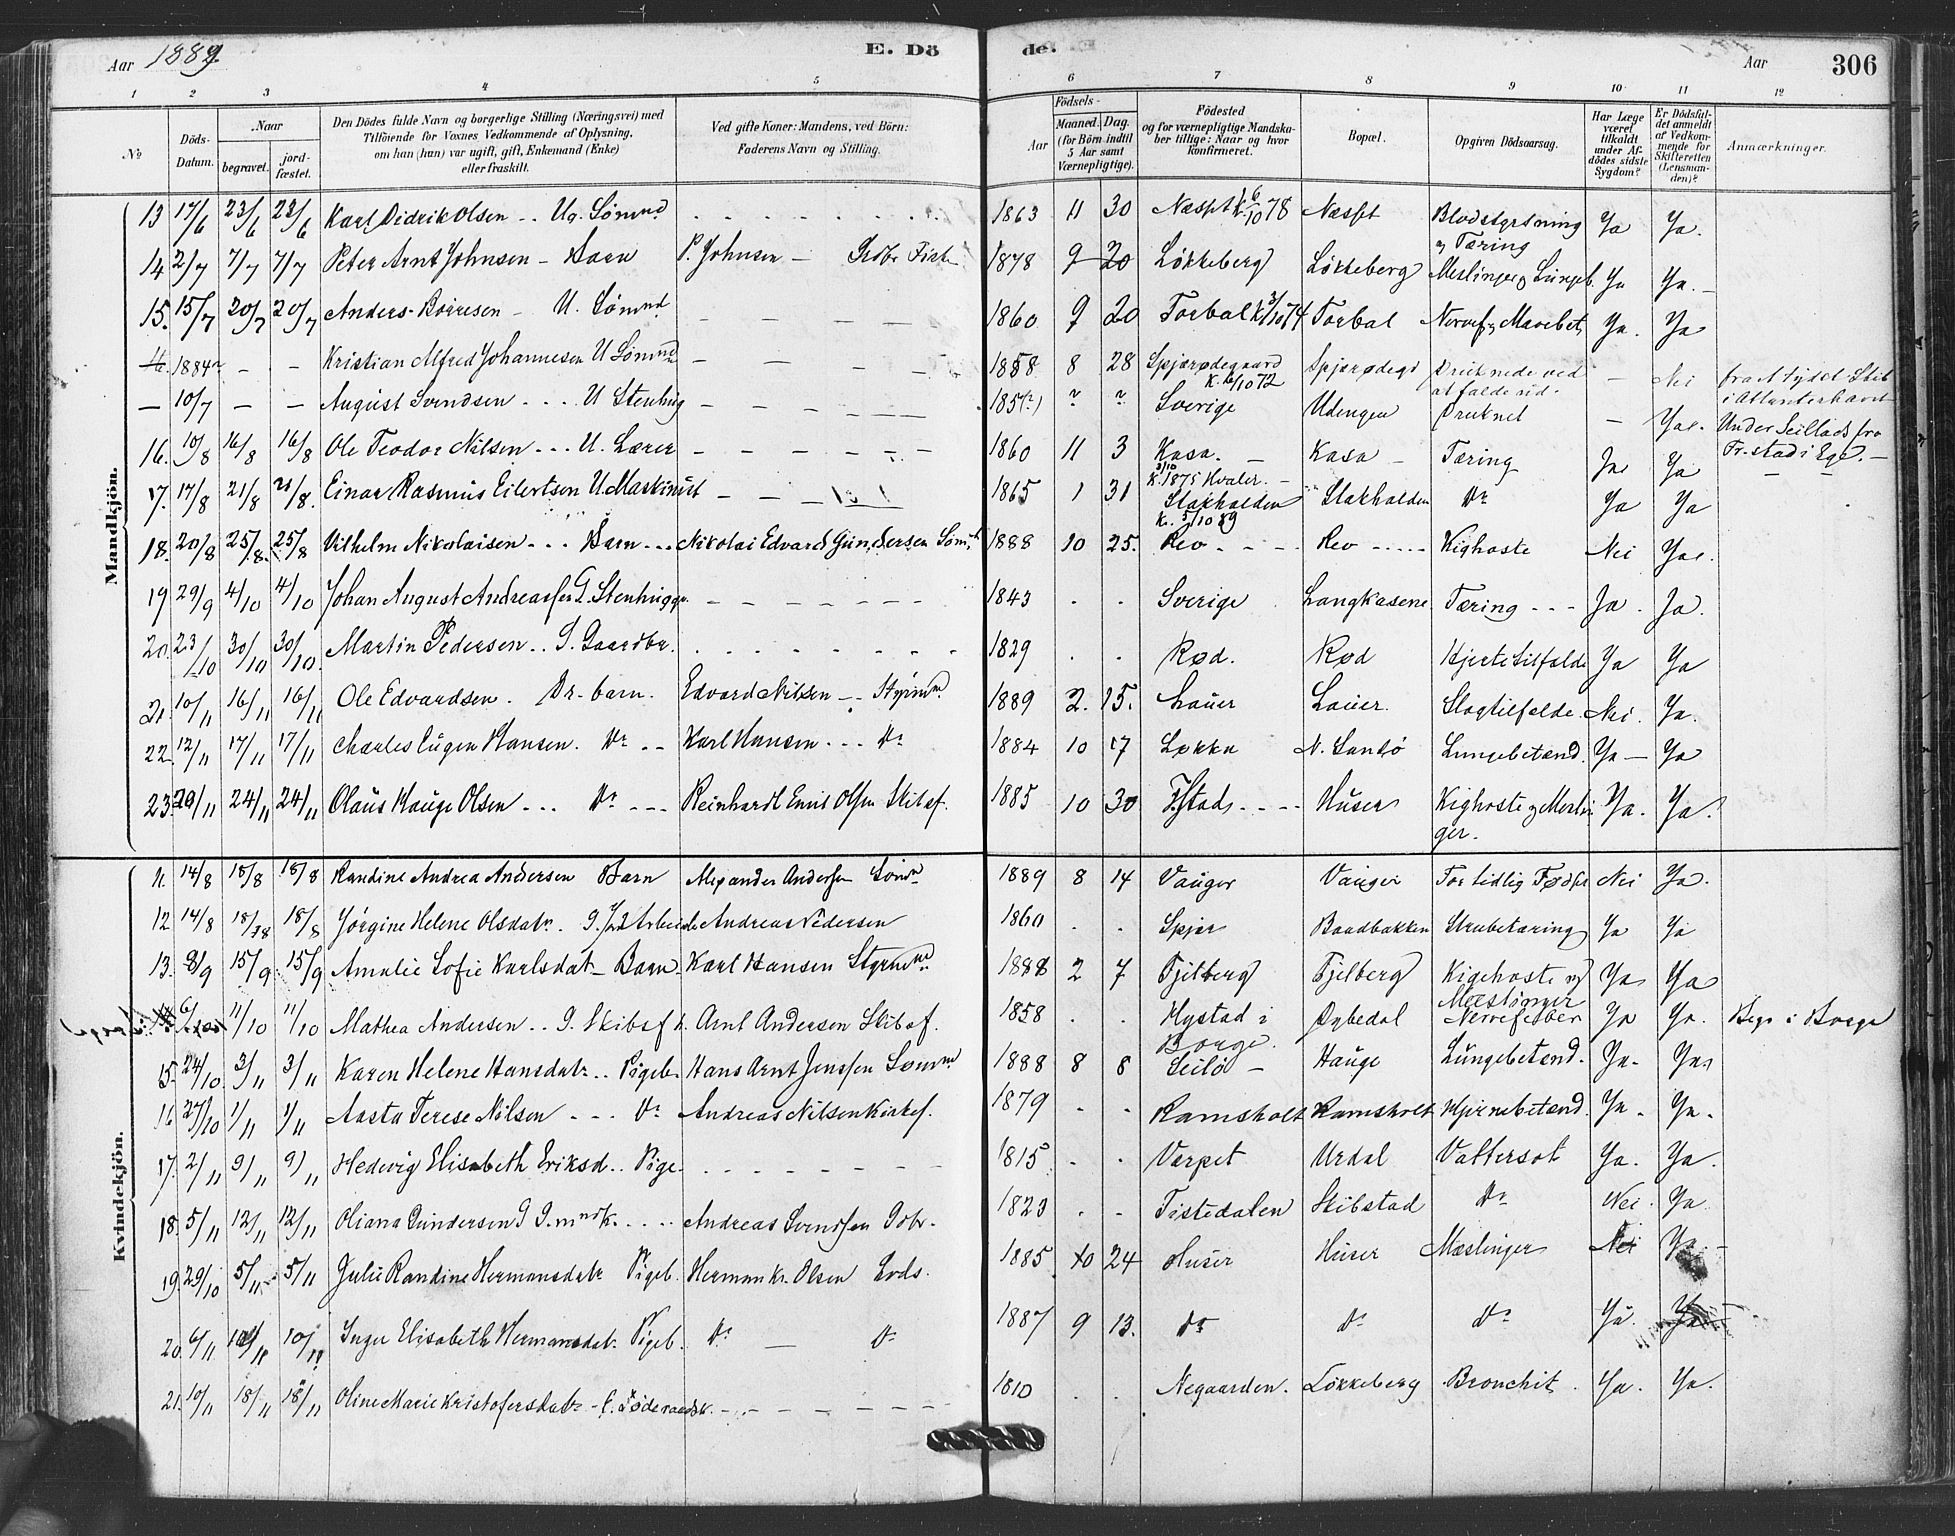 Aar 1889. E. Dö de. Aar 306
1 2 3 4 5 6 7 8 9 10 11 12
No
Döds-Datum.
Naar
begravet.
jord-fæstet.
Den Dödes fulde Navn og borgerlige Stilling (Næringsvei) med
Tilföiende for Voxnes Vedkommende af Oplysning,
om han (hun) var ugift, gift, Enkemand (Enke)
eller fraskilt.
Ved gifte Koner: Mandens, ved Börn:
Faderens Navn og Stilling.
Födsels-
Aar
Maaned. Dag.
(for Börn indtil
5 Aar samt
Værnepligtige).
Födested
og for værnepligtige Mandska-
ber tillige: Naar og hvor
konfirmeret.
Bopæl.
Opgiven Dödsaarsag.
Har Læge
været
tilkaldt
under Af-
dödes sidste
Sygdom?
Er Dödsfal-
det anmeldt
af Vedkom-
mende for
Skifteretten
(Lensman-
den)?
Anmærkninger.
Mandkjön.
13 17/6 23/6 23/6 Karl Didrik Olsen .. Ug. Sømnd 1863 11 30 Næsset k. 6/10 78 Næsset Blodstyrtning & Tæring Ja Ja.
14 2/7 7/7 7/7 Peter Arnt Johnsen - Barn P. Johnsen - 1878 9 20 Løkkeberg Løkkeberg Meslinger & Lungeb. Ja Ja. -
15. 15/7 20/7 20/7 Anders Børresen - U. Sømnd 1860 9 20 Torbal k. 3/10 74 Torbal Nervef. & Mavebet. Ja. Ja
1884 - - Kristian Alfred Johannesen U Sømnd 1858 8 28 Spjærødegaard K. 6/10 72 Spjærødegd Druknede ved at falde ud. - Nei fra et tydsk Skib i Atlanterhavet
- 10/7 - - August Svendsen .... U Stenhug 185 Sverige Udengen Druknet - Ja. Under Seillads fra Fr.stad i Ege. -
16. 10/8 16/8 16/8 Ole Teodor Nilsen ... U. Lærer 1860 11 3 Kasa. - K. 3/10 1875 Hvaler. Kasa - Tæring Ja Ja
17. 17/8 21/8 21/8. Einar Rasmus Eilertsen U Maskinist 1865 1 31 Stakholden Stakholden Do Ja Ja
18. 20/8 25/8. 25/8 Vilhelm Nikolaisen ... Barn ... Nikolai Edvard Gundersen Sømnd 1888 10 25. Rev Rev Kighoste Nei Ja.
19 29/9 4/10 4/10 Johan August Andreassen G. Stenhugge 1843 . . Sverige Langkasene Tæring --- Ja. Ja.
20. 23/10 30/10 30/10. Martin Pedersen .. G. Gaardbr. 1829 . . Rød. Rød Hjertetilfælde Ja Ja
21. 10/11 16/11 16/11 Ole Edvardsen. Dr-barn. Edvard Nilsen -- Styrmd. 1889 2. 15. Lauer Lauer. Slagtilfælde. Nei. Ja.
22 12/11 17/11 17/11 Charles Eugen Hansen. Do .. Karl Hansen ... Do 1884 10 17 Løkka N. Sandö Lungebetænd. Ja - Ja
23. 20/11 24/11 24/11 Olaus Hauge Olsen ... Do --- Reinhardt Emil Olsen Skibsf. 1885 10 30 F.stad Huser Kighoste & Meslinger. Ja. Ja.
Kvindekjön.
11. 14/8 18/8 18/8 Randine Andrea Andersen Barn Alexander Andersen Sømd 1889 8 14 Vauger Vauger For tidlig Fødsel Nei Ja.
12 14/8 18/8 18/8 Jørgine Helene Olsdatr. G. Arbeide Andreas Pedersen 1860 . . Spjær Baadbakken Strubetæring Ja Ja
13. 8/9 15/9 15/9 Amalie Sofie Karlsdat - Barn. Karl Hansen Styrmd 1888 2 7 Fjelberg Fjelberg Kigehoste og Meslinger Ja Ja
6/10 11/10 11/10 Mathea Andersen .. G. Skibsf k. Arnt Andersen Skibsf. 1858 . . Hystad i Borge. Dybedal Nervefeber Ja Ja. Begr i Borge
15. 24/10 3/11 3/11 Karen Helene Hansdatr .. Pigeb. Hans Arnt Jenssen Sømnd 1888 8 8 Seilø - Hauge Lungebetænd. Ja. Ja.
16 27/10 1/11 1/11 Aasta Terese Nilsen --- Do Andreas Nilsen Kirkef. 1879 . . Ramsholt Ramsholt Hjernebetænd. Ja. Ja.
17. 2/11 9/11 9/11 Hedevig Elisabeth Eriksd .. Pige. 1815 . . Værpet Urdal Vattersot Ja. Ja.
18. 5/11 12/11 12/11 Oliana Gundersen G G.mndk. Andreas Svendsen Gbr. 1823 . . Tistedalen Skibstad Do Nei. Ja
19. 29/10 5/11 5/11 Julie Randine Hermansdatr Pigeb. Herman Kr. Olsen Lods. 1885 10 24 Huser Huser Mæslinger Nei Ja. -
20. 6/11 10/11 10/11 Inger Elisabeth Hermansdat. Pigeb. Do - Do 1887 9 13. Do Do Do Ja. Ja
21. 10/11 18/11 18/11 Oline Marie Kristofersdatr - 1810 . . Negaarden. Løkkeberg Bronchit. Ja. Ja.